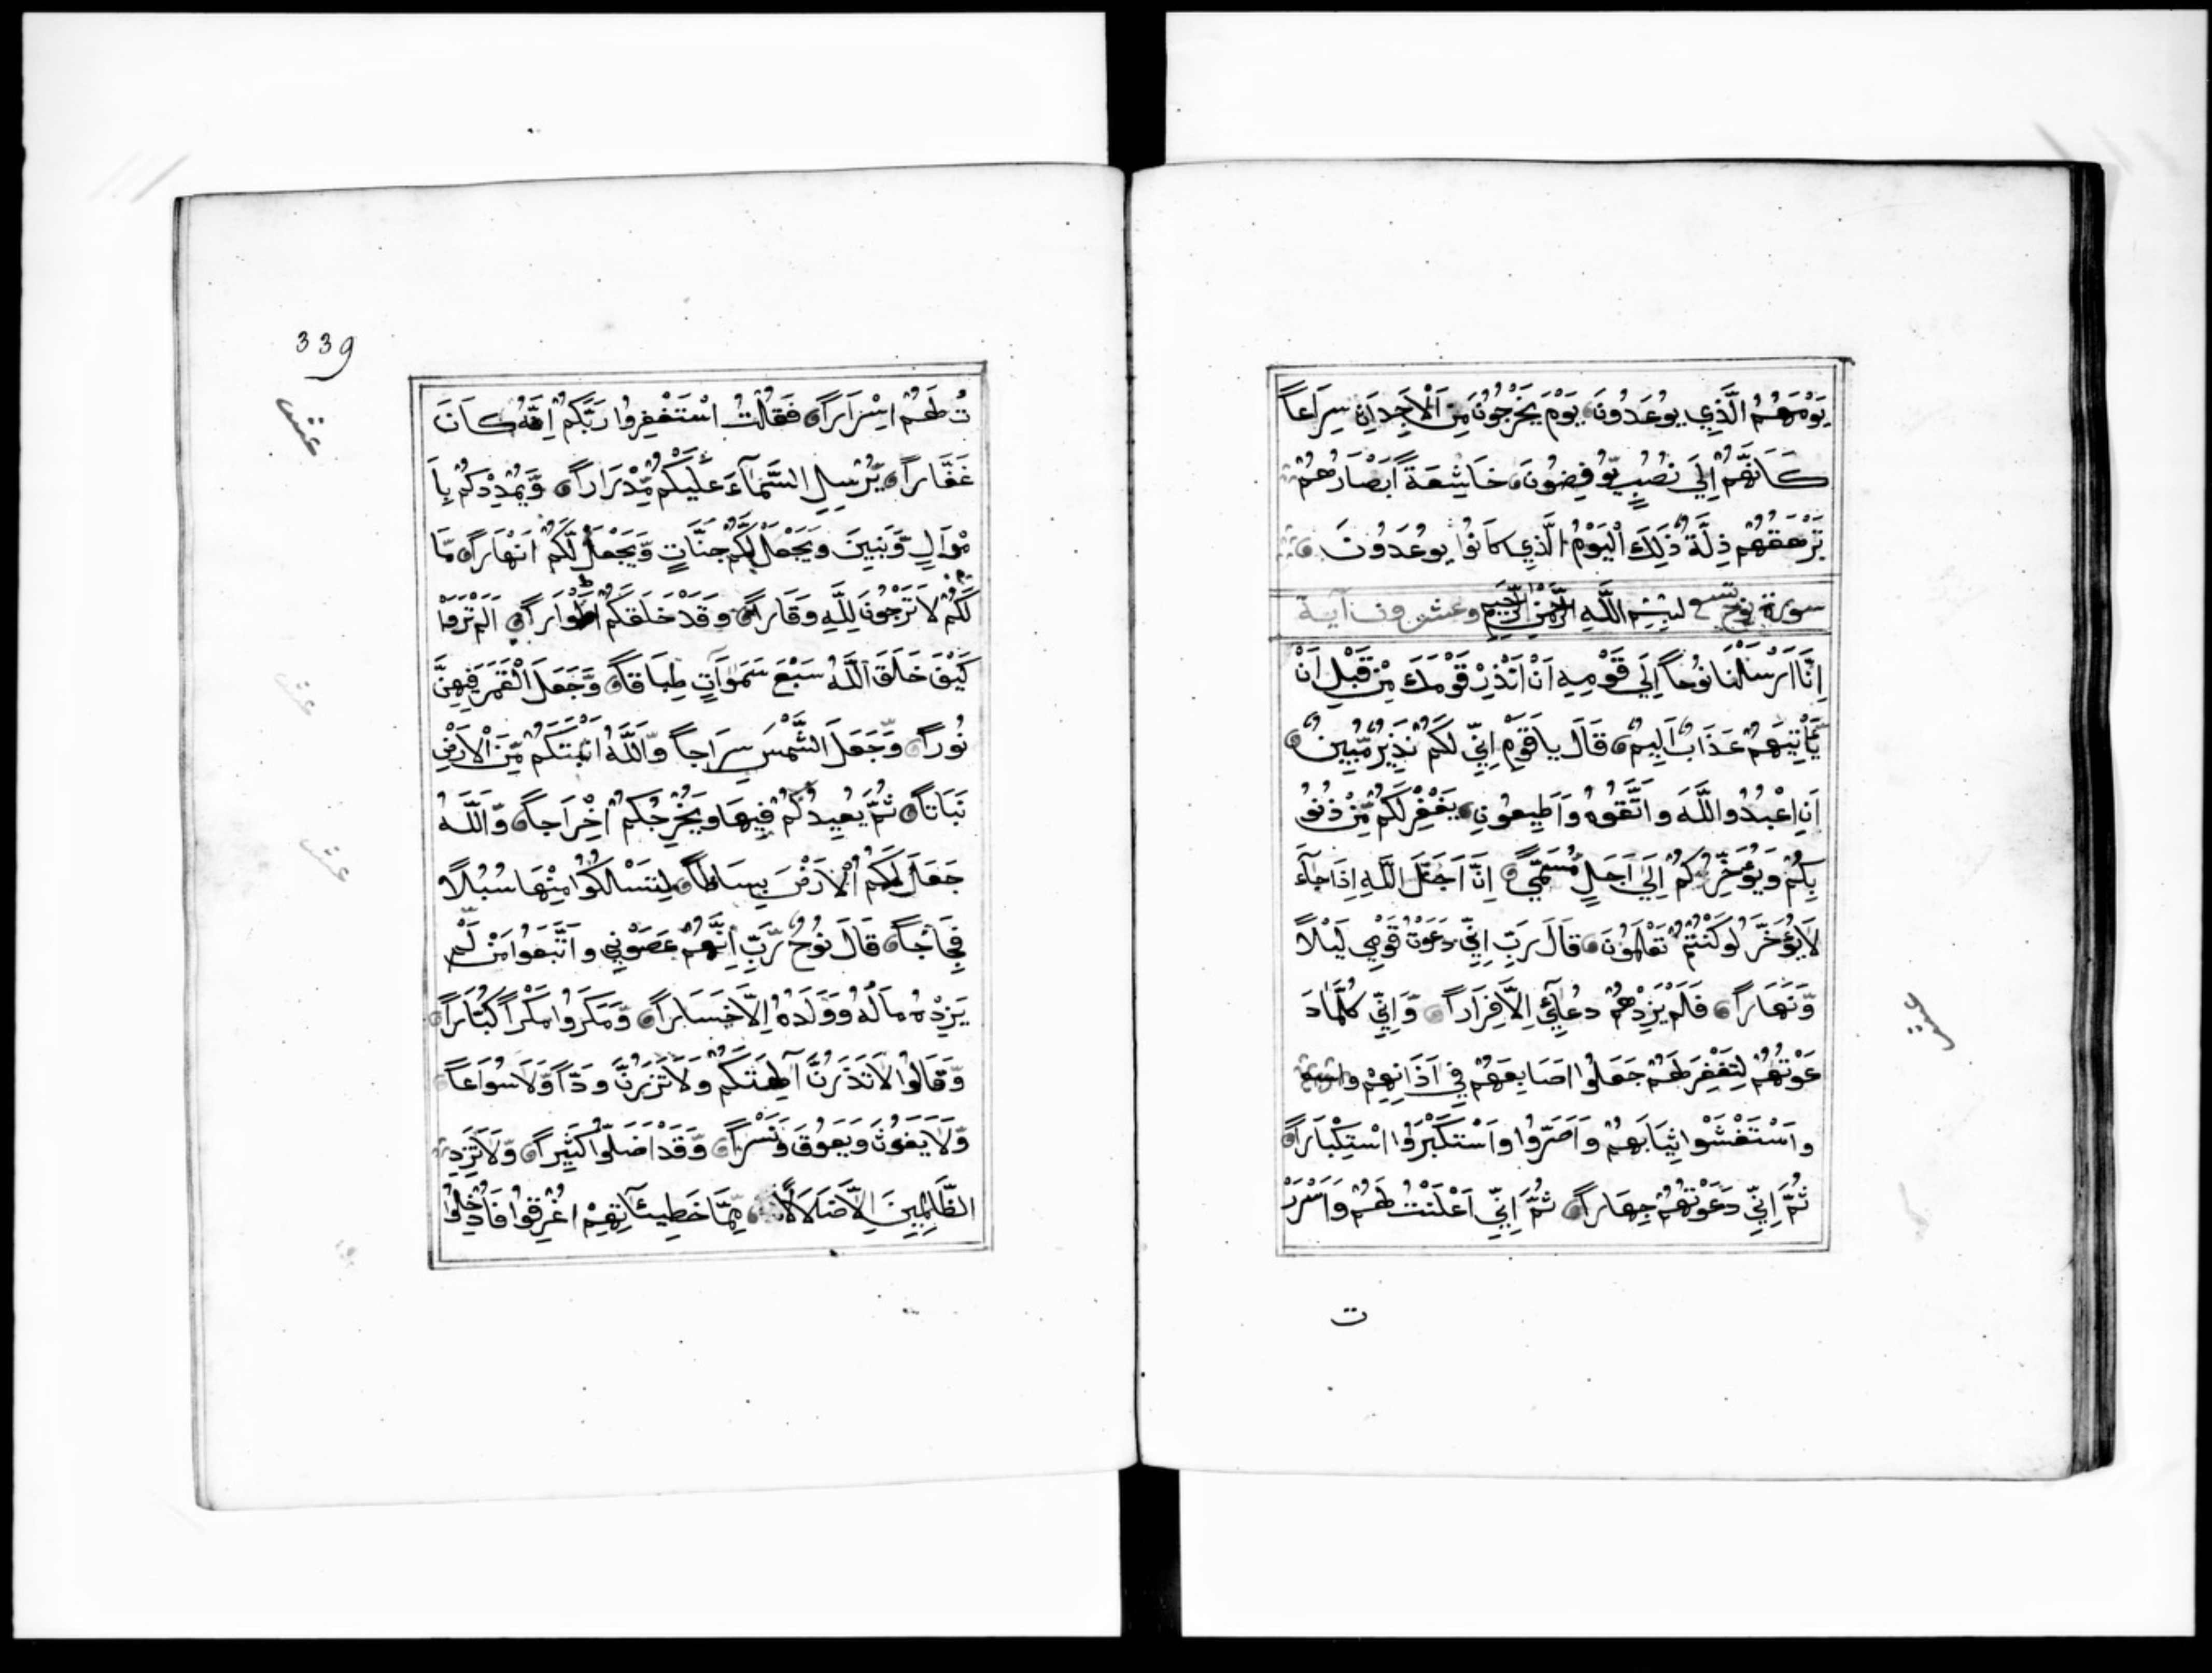 يَوْمَهُمُ الَّذِي يُوعَدُونَ يَوْمَ يَخْرُجُونَ مِنَ الْأَجِدَاثِ سِرَاعاً
كَأَنَّهُمْ إِلَى نُصُبٍ يُّوفِضُونَ خَاشِعَةً أَبْصَارُهُمْ
تَرْهَقُهُمْ ذِلَّةٌ ذَلِكَ الْيَوْمُ الَّذِي كَانُوا يُوعَدُونَ
سورة نوح تسع بِسْمِ اللَّهِ الرَّحْمَنِ الرَّحِيمِ وعشرون آية
إِنَّا أَرْسَلْنَا نُوحاً إِلَى قَوْمِهِ أَنْ أَنْذِرْ قَوْمَكَ مِنْ قَبْلِ أَنْ
يَّأْتِيَهُمْ عَذَابٌ أَلِيمٌ قَالَ يَا قَوْمِ إِنِّي لَكُمْ نَذِيرٌ مُّبِينٌ
أَنِ اعْبُدُوا اللَّهَ وَاتَّقُوهُ وَأَطِيعُونِ يَغْفِرْ لَكُمْ مِّنْ ذُنُو
بِكُمْ وَيُؤَخِّرْكُمْ إِلَى أَجَلٍ مُّسَمًّى إِنَّ أَجَلَ اللَّهِ إِذَا جَاءَ
لَا يُؤَخَّرُ لَوْ كُنْتُمْ تَعْلَمُونَ قَالَ رَبِّ إِنِّي دَعَوْتُ قَوْمِي لَيْلاً
وَّنَهَاراً فَلَمْ يَزِدْهُمْ دُعَائِي إِلَّا فِرَاراً وَإِنِّي كُلَّمَا دَ
عَوْتُهُمْ لِتَغْفِرَ لَهُمْ جَعَلُوا أَصَابِعَهُمْ فِي آذَانِهِمْ
وَاسْتَغْشَوْا ثِيَابَهُمْ وَأَصَرُّوا وَاسْتَكْبَرُوا اسْتِكْبَاراً
ثُمَّ إِنِّي دَعَوْتُهُمْ جِهَاراً ثُمَّ إِنِّي أَعْلَنْتُ لَهُمْ وَأَسْرَرْ
ت
عشر
339
عشر
تُ لَهُمْ إِسْرَاراً فَقُلْتُ اسْتَغْفِرُوا رَبَّكُمْ إِنَّهُ كَانَ
غَفَّاراً يُّرْسِلِ السَّمَاءَ عَلَيْكُمْ مِّدْرَاراً وَّيُمْدِدْكُمْ بِأَ
مْوَالٍ وَّبَنِينَ وَيَجْعَلْ لَّكُمْ جَنَّاتٍ وَّيَجْعَلْ لَّكُمْ أَنْهَاراً مَّا
لَكُمْ لَا تَرْجُونَ لِلَّهِ وَقَاراً وَقَدْ خَلَقَكُمْ أَطْوَاراً أَلَمْ تَرَوْا
كَيْفَ خَلَقَ اللَّهُ سَبْعَ سَمَوَاتٍ طِبَاقاً وَّجَعَلَ الْقَمَرَ فِيهِنَّ
نُوراً وَّجَعَلَ الشَّمْسَ سِرَاجاً وَّاللَّهُ أَنْبَتَكُمْ مِّنَ الْأَرْضِ
نَبَاتاً ثُمَّ يُعِيدُكُمْ فِيهَا وَيُخْرِجُكُمْ إِخْرَاجاً وَّاللَّهُ
جَعَلَ لَكُمُ الْأَرْضَ بِسَاطاً لِتَسْلُكُوا مِنْهَا سُبُلاً
فِجَاجاً قَالَ نُوحٌ رَّبِّ إِنَّهُمْ عَصَوْنِي وَاتَّبَعُوا مَنْ لَّمْ
يَزِدْهُ مَالُهُ وَوَلَدُهُ إِلَّا خَسَاراً وَّمَكَرُوا مَكْراً كُبَّاراً
وَّقَالُوا لَا تَذَرُنَّ آلِهَتَكُمْ وَلَا تَذَرُنَّ وَدّاً وَّلَا سُوَاعاً
وَّلَا يَغُوثَ وَيَعُوقَ وَنَسْراً وَّقَدْ أَضَلُّوا كَثِيراً وَّلَا تَزِدِ
الظَّالِمِينَ إِلَّا ضَلَالاً مِّمَّا خَطِيئَاتِهِمْ أُغْرِقُوا فَأُدْخِلُوا
عشر
عشر